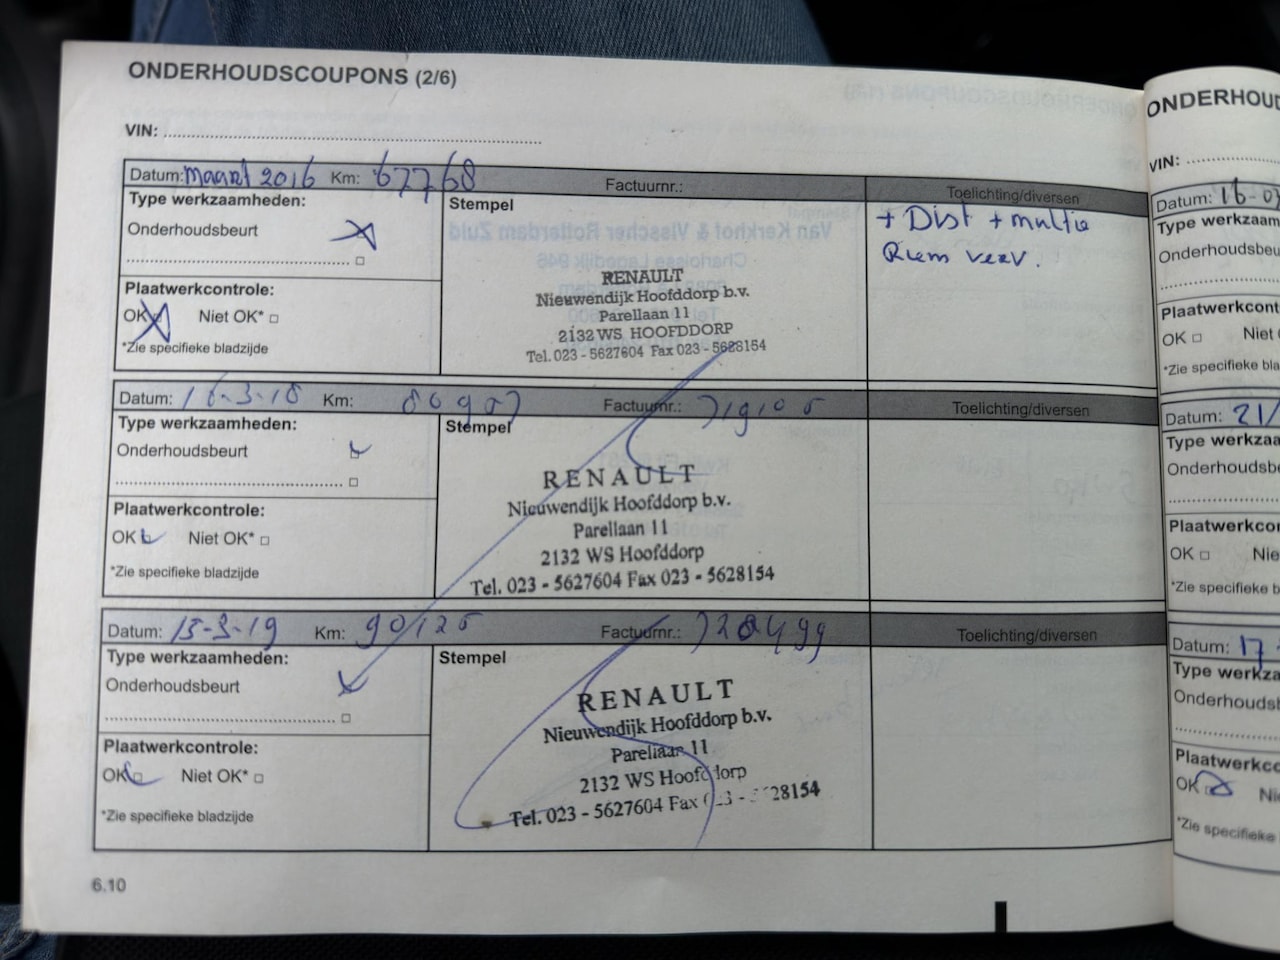 ONDERHOUDSCOUPONS (2/6)
VIN:
Datum: maart 2016 Km: 67768 Factuurnr.: Toelichting/diversen
Type werkzaamheden:
Onderhoudsbeurt
Plaatwerkcontrole:
OK Niet OK*
*Zie specifieke bladzijde
Stempel
RENAULT
Nieuwendijk Hoofddorp b.v.
Parellaan 11
2132 WS HOOFDDORP
Tel. 023 - 5627604 Fax 023 - 5628154
+ Dist + multie
Riem verv.
Datum: 16-3-18 Km: 80907 Factuurnr.: Toelichting/diversen
Type werkzaamheden:
Onderhoudsbeurt
Plaatwerkcontrole:
OK Niet OK*
*Zie specifieke bladzijde
Stempel
RENAULT
Nieuwendijk Hoofddorp b.v.
Parellaan 11
2132 WS Hoofddorp
Tel. 023 - 5627604 Fax 023 - 5628154
Datum: 15-3-19 Km: 90125 Factuurnr.: Toelichting/diversen
Type werkzaamheden:
Onderhoudsbeurt
Plaatwerkcontrole:
OK Niet OK*
*Zie specifieke bladzijde
Stempel
RENAULT
Nieuwendijk Hoofddorp b.v.
Parellaan 11
2132 WS Hoofddorp
Tel. 023 - 5627604 Fax 023 - 5628154
6.10
ONDERHOUD
VIN:
Datum: 16-03
Type werkzaam
Onderhoudsbeu
Plaatwerkcont
OK Niet
*Zie specifieke bla
Datum: 21/
Type werkzaa
Onderhoudsbe
Plaatwerkcor
OK Nie
*Zie specifieke b
Datum: 17-
Type werkza
Onderhoudsb
Plaatwerkcc
OK Ni
*Zie specifieke